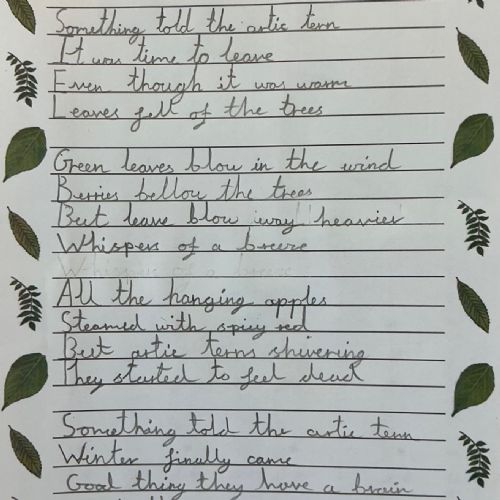 Something told the artic tern
It was time to leave
Even though it was warm
Leaves fell of the trees
Green leaves blow in the wind
Berries bellow the trees
But leave blow way heavier
Whispers of a breeze
All the hanging apples
Steamed with spicy red
But artic terns shivering
They started to feel dead
Something told the artic tern
Winter finally came
Good thing they have a brain